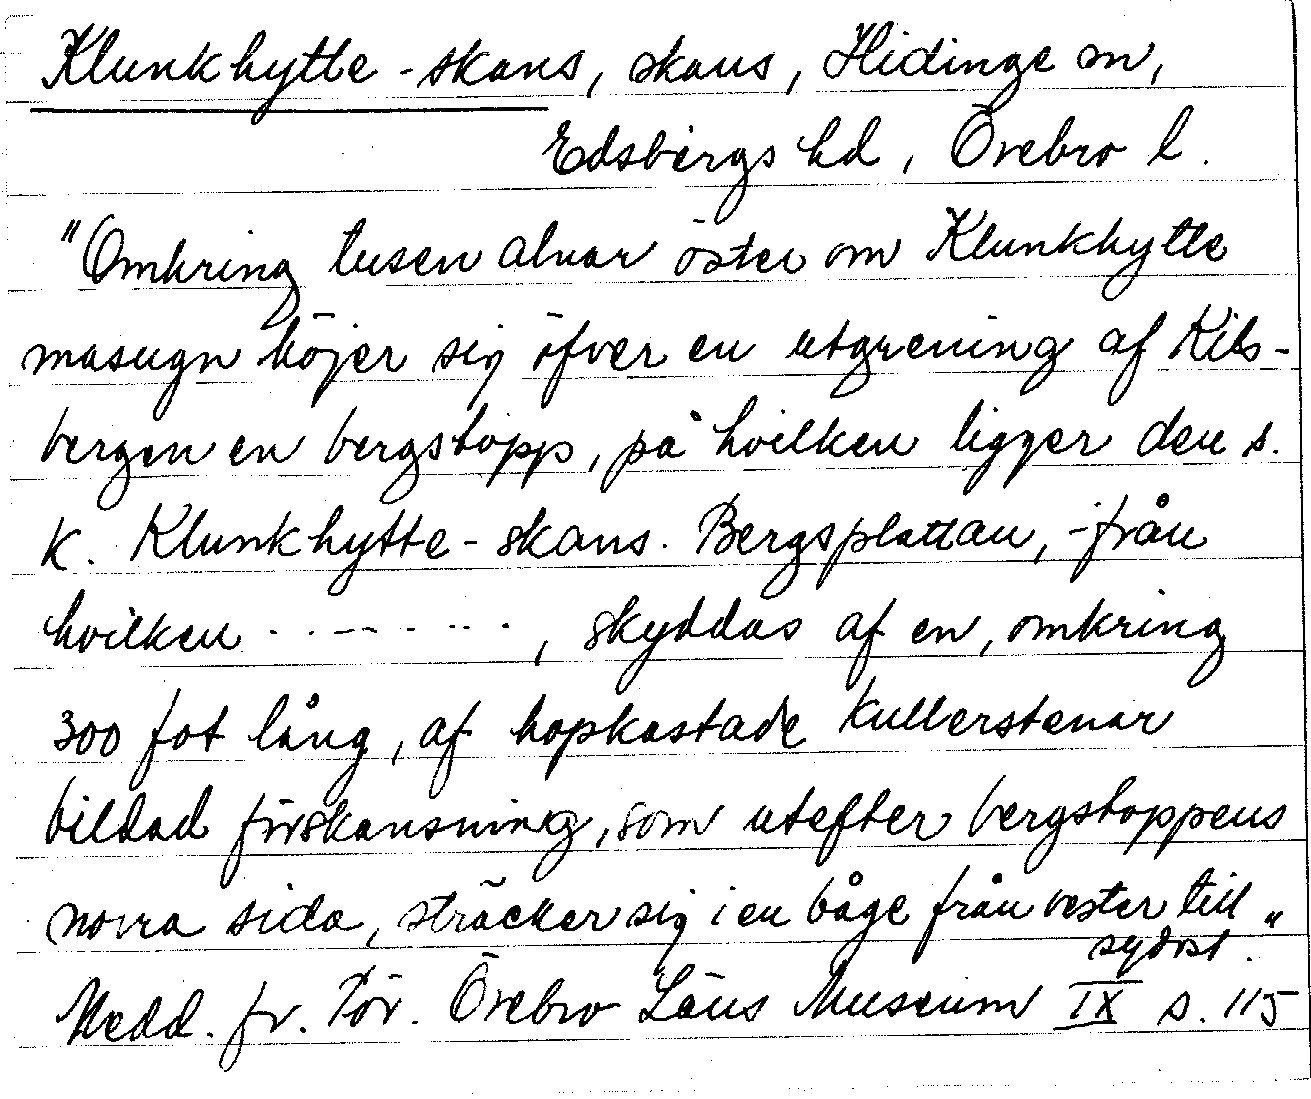 Klunkhytte-skans, skans, Hidinge sn,
Edsbergs hd, Örebro l.
"Omkring tusen alnar öster om Klunkhytte
masugn höjer sig öfver en utgrening af Kils-
bergen en bergstopp, på hvilken ligger den s.
k. Klunkhytte-skans. Bergsplattan, från
hvilken ........., skyddas af en, omkring
300 fot lång, af hopkastade kullerstenar
bildad förskansning, som utefter bergstoppens
norra sida, sträcker sig i en båge från vester till
sydost."
Medd. fr. För. Örebro Läns Museum IX s. 115